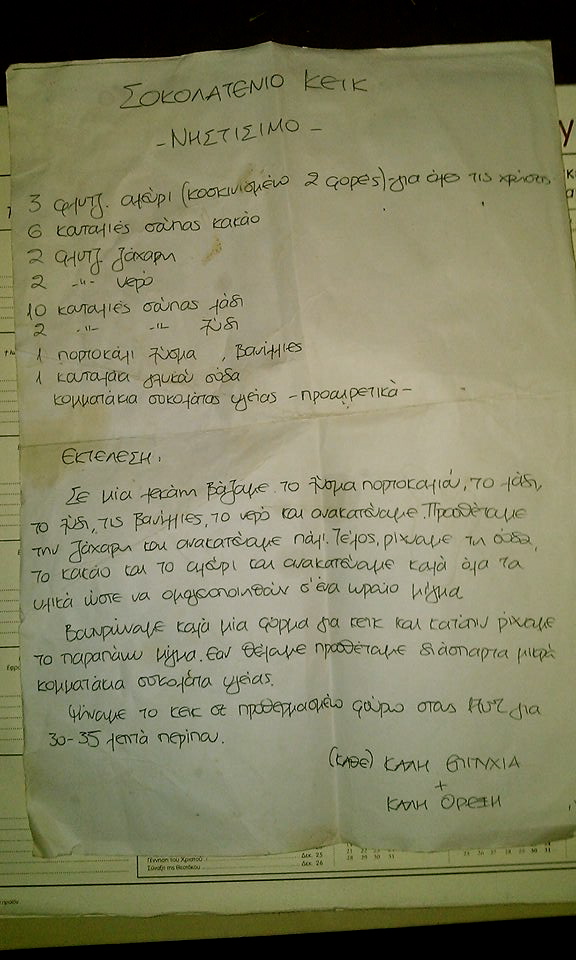 ΣΟΚΟΛΑΤΕΝΙΟ ΚΕΙΚ
- ΝΗΣΤΙΣΙΜΟ -
3 φλυτζ. αλεύρι (κοσκινισμένο 2 φορές) - για όλες τις χρήσεις
6 κουταλιές σούπας κακάο
2 φλυτζ. ζάχαρη
2 -"- νερό
10 κουταλιές σούπας λάδι
2 -"- -"- ξύδι
1 πορτοκάλι ξύσμα, βανίλλιες
1 κουταλάκι γλυκού σόδα
κομματάκια σοκολάτας υγείας - προαιρετικά -
ΕΚΤΕΛΕΣΗ:
Σε μία λεκάνη βάζουμε το ξύσμα πορτοκαλιού, το λάδι,
το ξύδι, τις βανίλλιες, το νερό και ανακατεύουμε. Προσθέτουμε
την ζάχαρη και ανακατεύουμε πάλι. Τέλος, ρίχνουμε τη σόδα,
το κακάο και το αλεύρι και ανακατεύουμε καλά όλα τα
υλικά ώστε να ομογενοποιηθούν σ' ένα ωραίο μίγμα.
Βουτυρώνουμε καλά μία φόρμα για κεικ και κατόπιν ρίχνουμε
το παραπάνω μίγμα. Εάν θέλουμε προσθέτουμε διάσπαρτα μικρά
κομματάκια σοκολάτα υγείας.
Ψήνουμε το κεικ σε προθερμασμένο φούρνο στους 180°C για
30-35 λεπτά περίπου.
(ΚΑΘΕ) ΚΑΛΗ ΕΠΙΤΥΧΙΑ
+
ΚΑΛΗ ΟΡΕΞΗ
Γέννηση του Χριστού Δεκ. 25
Σύναξη της Θεοτόκου Δεκ. 26